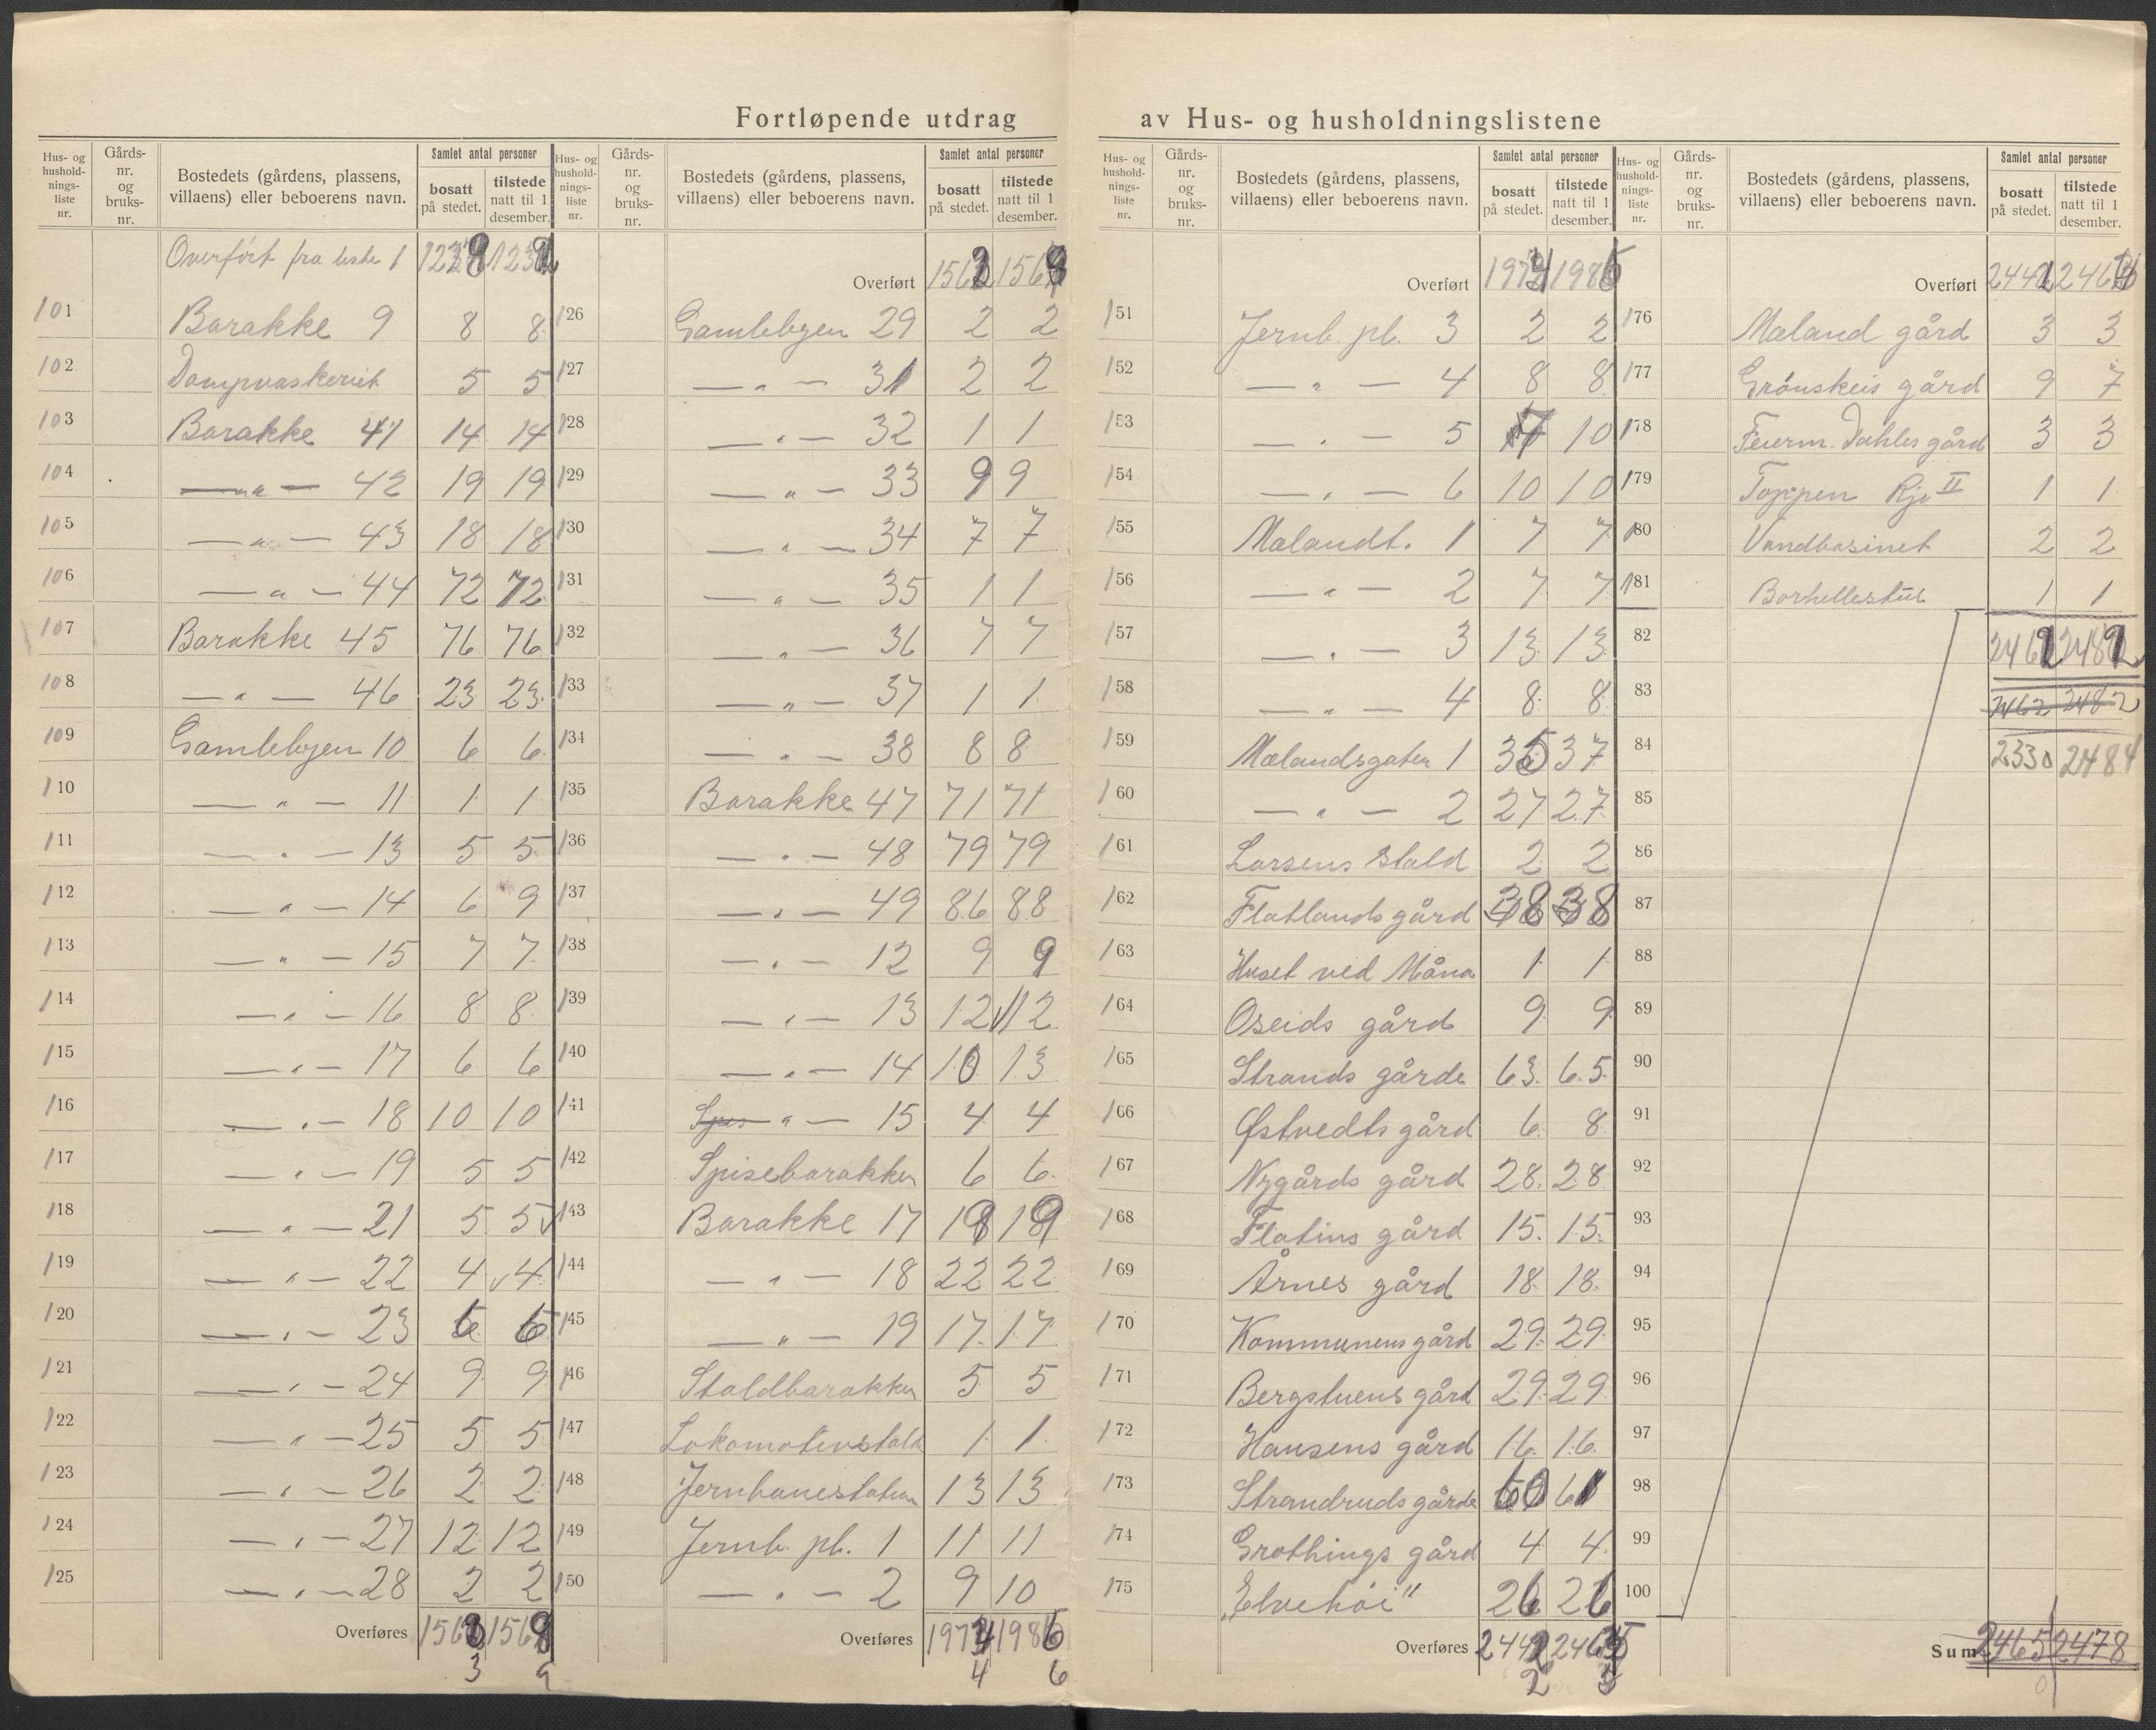 Fortløpende utdrag av Hus- og husholdningslistene
Hus- og hushold-nings-liste nr. | Gårds-nr. og bruks-nr. | Bostedets (gårdens, plassens, villaens) eller beboerens navn. | Samlet antal personer | bosatt på stedet. | tilstede natt til 1 desember.
Overført fra liste 1 1239 1232
101 Barakke 9 8 8
102 Dampvaskeriet 5 5
103 Barakke 41 14 14
104 — " — 42 19 19
105 — " — 43 18 18
106 — " — 44 72 72
107 Barakke 45 76 76
108 — " — 46 23 23
109 Gamlebyen 10 6 6
110 — " — 11 1 1
111 — " — 13 5 5
112 — " — 14 6 9
113 — " — 15 7 7
114 — " — 16 8 8
115 — " — 17 6 6
116 — " — 18 10 10
117 — " — 19 5 5
118 — " — 21 5 5
119 — " — 22 4 4
120 — " — 23 6 6
121 — " — 24 9 9
122 — " — 25 5 5
123 — " — 26 2 2
124 — " — 27 12 12
125 — " — 28 2 2
Overføres 1563 1569
3 9
Hus- og hushold-nings-liste nr. | Gårds-nr. og bruks-nr. | Bostedets (gårdens, plassens, villaens) eller beboerens navn. | Samlet antal personer | bosatt på stedet. | tilstede natt til 1 desember.
Overført 1563 1569
126 Gamlebyen 29 2 2
127 — " — 31 2 2
128 — " — 32 1 1
129 — " — 33 9 9
130 — " — 34 7 7
131 — " — 35 1 1
132 — " — 36 7 7
133 — " — 37 1 1
134 — " — 38 8 8
135 Barakke 47 71 71
136 — " — 48 79 79
137 — " — 49 86 88
138 — " — 12 9 9
139 — " — 13 12 12
140 — " — 14 10 13
141 Spis — " — 15 4 4
142 Spisebarakken 6 6
143 Barakke 17 19 19
144 — " — 18 22 22
145 — " — 19 17 17
146 Staldbarakken 5 5
147 Lokomotivstald 1 1
148 Jernbanestation 13 13
149 Jernb. pl. 1 11 11
150 — " — 2 9 10
Overføres 1974 1986
4 6
Hus- og hushold-nings-liste nr. | Gårds-nr. og bruks-nr. | Bostedets (gårdens, plassens, villaens) eller beboerens navn. | Samlet antal personer | bosatt på stedet. | tilstede natt til 1 desember.
Overført 1974 1986
151 Jernb. pl. 3 2 2
152 — " — 4 8 8
153 — " — 5 7 10
154 — " — 6 10 10
155 Mælandt. 1 7 7
156 — " — 2 7 7
157 — " — 3 13 13
158 — " — 4 8 8
159 Mælandsgaten 1 35 37
160 — " — 2 27 27
161 Larsens stald 2 2
162 Flatlands gård 38 38
163 Huset ved Måna 1 1
164 Oseids gård 9 9
165 Strands gårde 63 65
166 Østvedts gård 6 8
167 Nygårds gård 28 28
168 Flatins gård 15 15
169 Årnes gård 18 18
170 Kommunens gård 29 29
171 Bergstuens gård 29 29
172 Hansens gård 16 16
173 Strandruds gårde 60 61
174 Grothings gård 4 4
175 „Elvehøi" 26 26
Overføres 2442 2465
2 5
Hus- og hushold-nings-liste nr. | Gårds-nr. og bruks-nr. | Bostedets (gårdens, plassens, villaens) eller beboerens navn. | Samlet antal personer | bosatt på stedet. | tilstede natt til 1 desember.
Overført 2442 2464
176 Mæland gård 3 3
177 Grönskeis gård 9 7
178 Feierm. Dahles gård 3 3
179 Toppen Rjo II 1 1
180 Vandbasinet 2 2
181 Borhellestul 1 1
82 2462 2482
83 2462 2482
84 2330 2484
85
86
87
88
89
90
91
92
93
94
95
96
97
98
99
100
Sum 2465 2478